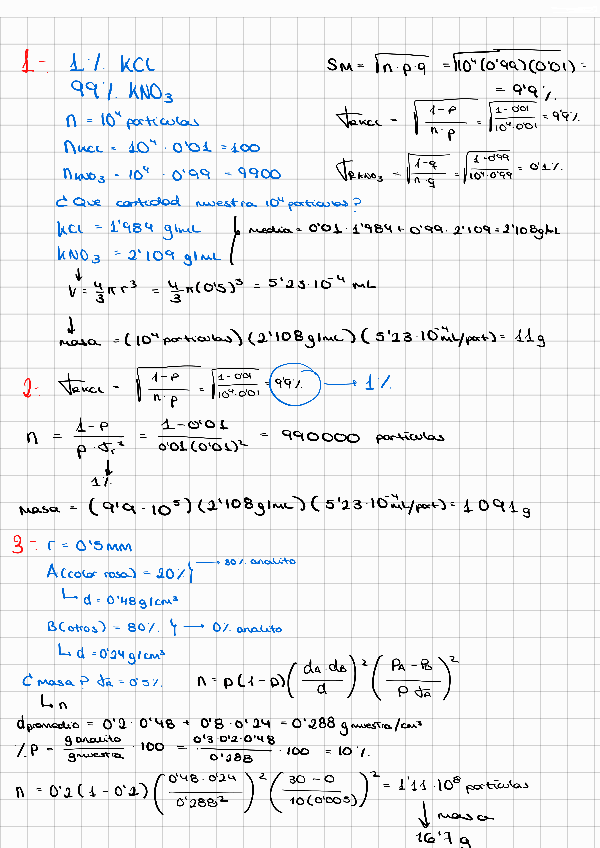 1- 1% KCl
99% KNO3
n = 10⁴ particulas
nKCl = 10⁴ · 0'01 = 100
nKNO3 = 10⁴ · 0'99 = 9900
SM = √n·p·q = √10⁴(0'99)(0'01) =
= 9'9%
σRKCl = √(1-p)/(n·p) = √(1-0'01)/(10⁴·0'01) = 9'9%
σRKNO3 = √(1-q)/(n·q) = √(1-0'99)/(10⁴·0'99) = 0'1%
¿Que cantidad muestra 10⁴ particulas?
KCl = 1'984 g/mL
KNO3 = 2'109 g/mL
media = 0'01 · 1'984 + 0'99 · 2'109 = 2'108 g/mL
V = 4/3 π r³ = 4/3 π (0'5)³ = 5'23·10⁻⁴ mL
masa = (10⁴ particulas)(2'108 g/mL)(5'23·10⁻⁴ mL/part) = 11g
2- σRKCl = √(1-p)/(n·p) = √(1-0'01)/(10⁴·0'01) = 9'9% → 1%
n = (1-p)/(p·σr²) = (1-0'01)/(0'01(0'01)²) = 990000 particulas
1%
masa = (9'9·10⁵)(2'108 g/mL)(5'23·10⁻⁴ mL/part) = 1091g
3- r = 0'5mm
A(color rosa) = 20% → 30% analito
↳ d = 0'48 g/cm³
B(otros) = 80% → 0% analito
↳ d = 0'24 g/cm³
¿masa? σa = 0'5%
↳ n
n = p(1-p)((dA·dB)/d)²((PA-PB)/(P σa))²
dpromedio = 0'2·0'48 + 0'8·0'24 = 0'288 g muestra/cm³
%P = g analito/g muestra · 100 = (0'3·0'2·0'48)/0'288 · 100 = 10%
n = 0'2(1-0'2)((0'48·0'24)/0'288²)²((30-0)/(10(0'005)))² = 1'11·10⁸ particulas
↓ masa
16'7 g